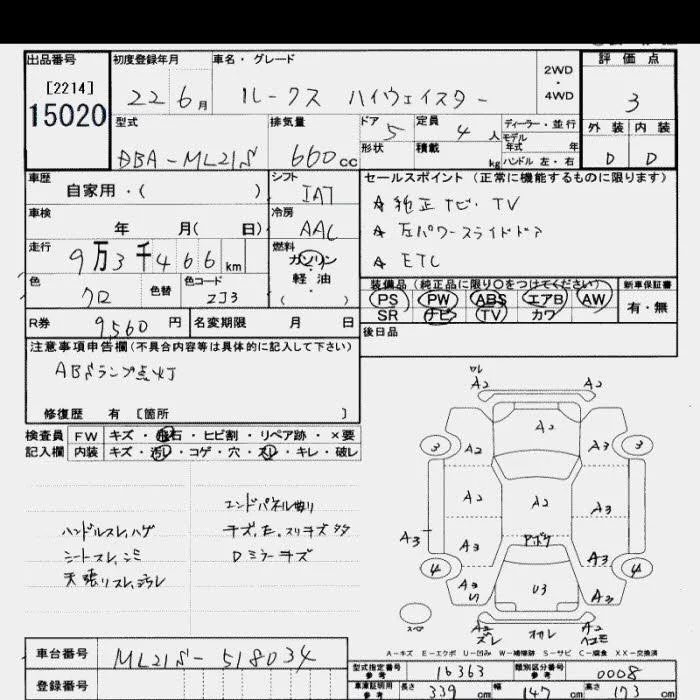 出品番号 初度登録年月 車名・グレード 2WD・4WD 評価点
[2214]
15020
22 6月 ルークス ハイウェイスター 3
型式 排気量 ドア 5 定員 4人 ディーラー・並行 外装 内装
モデル年式 年
DBA-ML21S 660cc 形状 積載 kg ハンドル 左・右 D D
車歴 シフト セールスポイント (正常に機能するものに限ります)
自家用・( ) IAT ☆ 純正ナビ・TV
車検 冷房 ☆ 左パワースライドドア
年 月( 日) AAC ☆ ETC
走行 燃料
9万3千466km ガソリン
軽・油
( )
色 色替 色コード 装備品 (純正品に限り○をつけてください) 新車保証書
クロ ZJ3 PS PW ABS エアB AW 有・無
SR ナビ TV カワ
R券 9,560円 名変期限 月 日 後日品
注意事項申告欄(不具合内容等は具体的に記入して下さい)
ABSランプ点灯
修復歴 有 [箇所 ]
検査員 FW キズ・飛石・ヒビ割・リペア跡・×要
記入欄 内装 キズ・汚レ・コゲ・穴・スレ・キレ・破レ
エンドパネル曲り
ハンドルスレ,ハゲ キズ.E.スリキズ多
シートスレ,シミ Dミラーキズ
天張リスレ,ヨゴレ
ワレ
A2 A2
A2
3 A2 A3 3
A2 A2 A3
A3 A3 アポケ A3
4 4
A3 U3 A2
スペア
A2 ズレ オカレ A2 ヘコミ
A-キズ E-エクボ U-凹み W-補修跡 S-サビ C-腐食 XX-交換済
車台番号 ML21S-518034
型式指定番号 参考 16363 類別区分番号 参考 0008
登録番号 車庫証明用 参考 長さ 339cm 幅 147cm 高さ 173cm